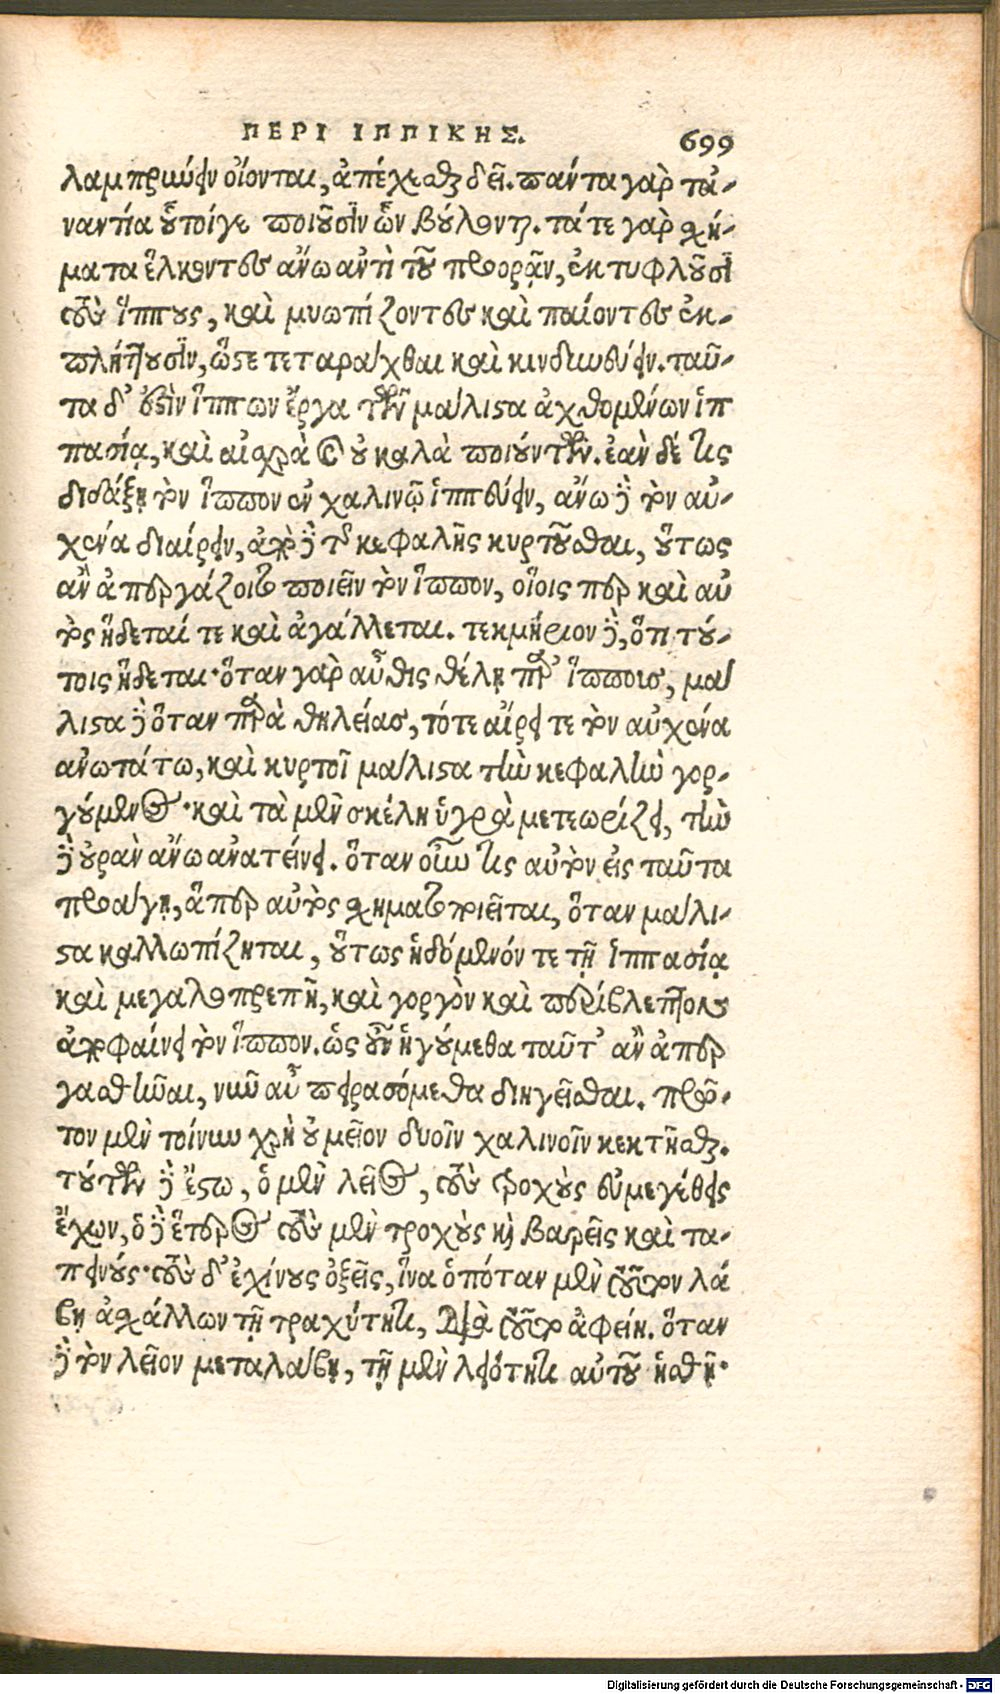 ΠΕΡΙ ΙΠΠΙΚΗΣ. 699
λαμπρύνειν οἴονται, ἀπέχεσθαι δεῖ. πάντα γὰρ τἀ-
ναντία οὗτοί γε ποιοῦσιν ὧν βούλονται. τά τε γὰρ σχή-
ματα ἕλκοντες ἄνω ἀντὶ τοῦ προορᾷν, ἐκτυφλοῦσι
τοὺς ἵππους, καὶ μυωπίζοντες καὶ παίοντες ἐκ-
πλήττουσιν, ὥστε τεταράχθαι καὶ κινδυνεύειν. ταῦ-
τα δ' ἐστὶν ἵππων ἔργα τῶν μάλιστα ἀχθομένων ἱπ
πασίᾳ, καὶ αἰσχρὰ καὶ οὐ καλὰ ποιούντων. ἐὰν δέ τις
διδάξῃ τὸν ἵππον ἐν χαλινῷ ἱππεύειν, ἄνω δὲ τὸν αὐ-
χένα διαίρειν, ἀπὸ δὲ τῆς κεφαλῆς κυρτοῦσθαι, οὕτως
ἂν ἀπεργάζοιτο ποιεῖν τὸν ἵππον, οἵοις περ καὶ αὐ
τὸς ἥδεταί τε καὶ ἀγάλλεται. τεκμήριον δὲ, ὅτι τού-
τοις ἥδεται· ὅταν γὰρ αὖθις θέλῃ παρ' ἵπποις, μά
λιστα δὲ ὅταν παρὰ θηλείας, τότε αἴρει τε τὸν αὐχένα
ἀνωτάτω, καὶ κυρτοῖ μάλιστα τὴν κεφαλὴν γορ-
γούμενος· καὶ τὰ μὲν σκέλη ὑγρὰ μετεωρίζει, τὴν
δὲ οὐρὰν ἄνω ἀνατείνει. ὅταν οὖν τις αὐτὸν εἰς ταῦτα
προάγῃ, ἅπερ αὐτὸς σχηματοποιεῖται, ὅταν μάλι-
στα καλλωπίζηται, οὕτως ἡδόμενόν τε τῇ ἱππασίᾳ
καὶ μεγαλοπρεπῆ, καὶ γοργὸν καὶ περίβλεπτον
ἀποφαίνει τὸν ἵππον. ὡς οὖν ἡγούμεθα ταῦτ' ἂν ἀπερ
γασθῆναι, νῦν αὖ πειρασόμεθα διηγεῖσθαι. πρῶ-
τον μὲν τοίνυν χρὴ οὐ μεῖον δυοῖν χαλινοῖν κεκτῆσθαι.
τούτων δὲ ἔστω, ὁ μὲν λεῖος, τοὺς τροχοὺς εὐμεγέθεις
ἔχων, ὁ δὲ ἕτερος τοὺς μὲν τροχοὺς καὶ βαρεῖς καὶ τα-
πεινούς· τοὺς δ' ἐχίνους ὀξεῖς, ἵνα ὁπόταν μὲν τοῦτον λά
βῃ ἀσχάλλων τῇ τραχύτητι, διὰ τοῦτο ἀφείη. ὅταν
δὲ τὸν λεῖον μεταλάβῃ, τῇ μὲν λειότητι αὐτοῦ ἡσθῇ·
Digitalisierung gefördert durch die Deutsche Forschungsgemeinschaft - DFG